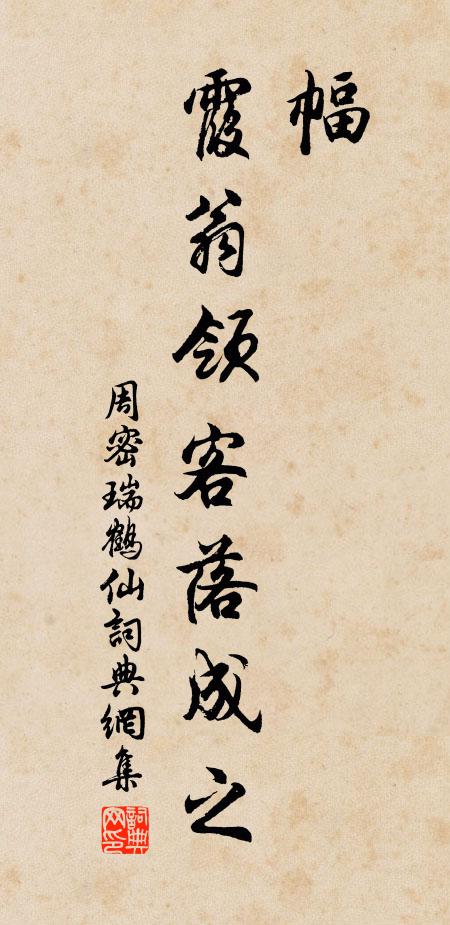 幅
霞翁領客落成之
周密瑞鶴仙詞典網集
詞典网印